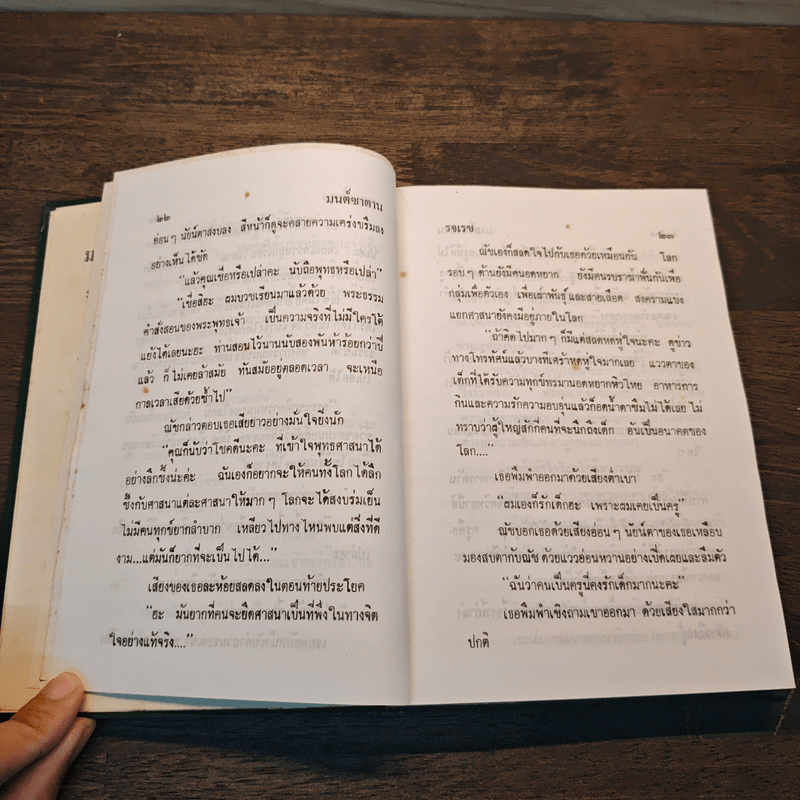 ๒๒
มนต์ซาตาน
อ่อน ๆ นัยน์ตาสงบลง สีหน้าก็ดูจะคลายความเคร่งขรึมลง
อย่างเห็นได้ชัด
"แล้วคุณเชื่อหรือเปล่าคะ นับถือพุทธหรือเปล่า"
"เชื่อสิฮะ ผมบวชเรียนมาแล้วด้วย พระธรรม
คำสั่งสอนของพระพุทธเจ้า เป็นความจริงที่ไม่มีใครโต้
แย้งได้เลยนะฮะ ท่านสอนไว้นานนับสองพันห้าร้อยกว่าปี
แล้ว ก็ไม่เคยล้าสมัย ทันสมัยอยู่ตลอดเวลา จะเหนือ
กาลเวลาเสียด้วยซ้ำไป"
ณัชกล่าวตอบเธอเสียยาวอย่างมั่นใจยิ่งนัก
"คุณก็นับว่าโชคดีนะคะ ที่เข้าใจพุทธศาสนาได้
อย่างลึกซึ้งน่ะค่ะ ฉันเองก็อยากจะให้คนทั้งโลกได้ลึก
ซึ้งกับศาสนาแต่ละศาสนาให้มาก ๆ โลกจะได้สงบร่มเย็น
ไม่มีคนทุกข์ยากลำบาก เหลียวไปทางไหนพบแต่สิ่งที่ดี
งาม...แต่มันก็ยากที่จะเป็นไปได้..."
เสียงของเธอละห้อยสลดลงในตอนท้ายประโยค
"ฮะ มันยากที่คนจะยึดศาสนาเป็นที่พึ่งในทางจิต
ใจอย่างแท้จริง...."
รจเรข
๒๓
ณัชเองก็สลดใจไปกับเธอด้วยเหมือนกัน โลก
รอบ ๆ ด้านยังมีคนอดหยาก ยังมีคนรบราฆ่าฟันกันเพื่อ
กลุ่มเพื่อตัวเอง เพื่อเผ่าพันธุ์และสายเลือด สงครามแบ่ง
แยกศาสนายังคงมีอยู่ภายในโลก
"ถ้าคิดไปมาก ๆ ก็มีแต่สลดหดหู่ใจนะคะ ดูข่าว
ทางโทรทัศน์แล้วบางทีเศร้าหดหู่ใจมากเลย แววตาของ
เด็กที่ได้รับความทุกข์ทรมานอดหยากหิวโหย อาหารการ
กินและความรักความอบอุ่นแล้วก็อดน้ำตาซึมไม่ได้เลย ไม่
ทราบว่าผู้ใหญ่สักกี่คนที่จะนึกถึงเด็ก อันเป็นอนาคตของ
โลก...."
เธอพึมพำออกมาด้วยเสียงต่ำเบา
"ผมเองก็รักเด็กฮะ เพราะผมเคยเป็นครู"
ณัชบอกเธอด้วยเสียงอ่อน ๆ นัยน์ตาของเธอเหลือบ
มองสบตากับณัช ด้วยแววอ่อนหวานอย่างเปิดเผยและลืมตัว
"ฉันว่าคนเป็นครูนี่คงรักเด็กมากนะคะ"
เธอพึมพำเชิงถามเขาออกมา ด้วยเสียงใสมากกว่า
ปกติ